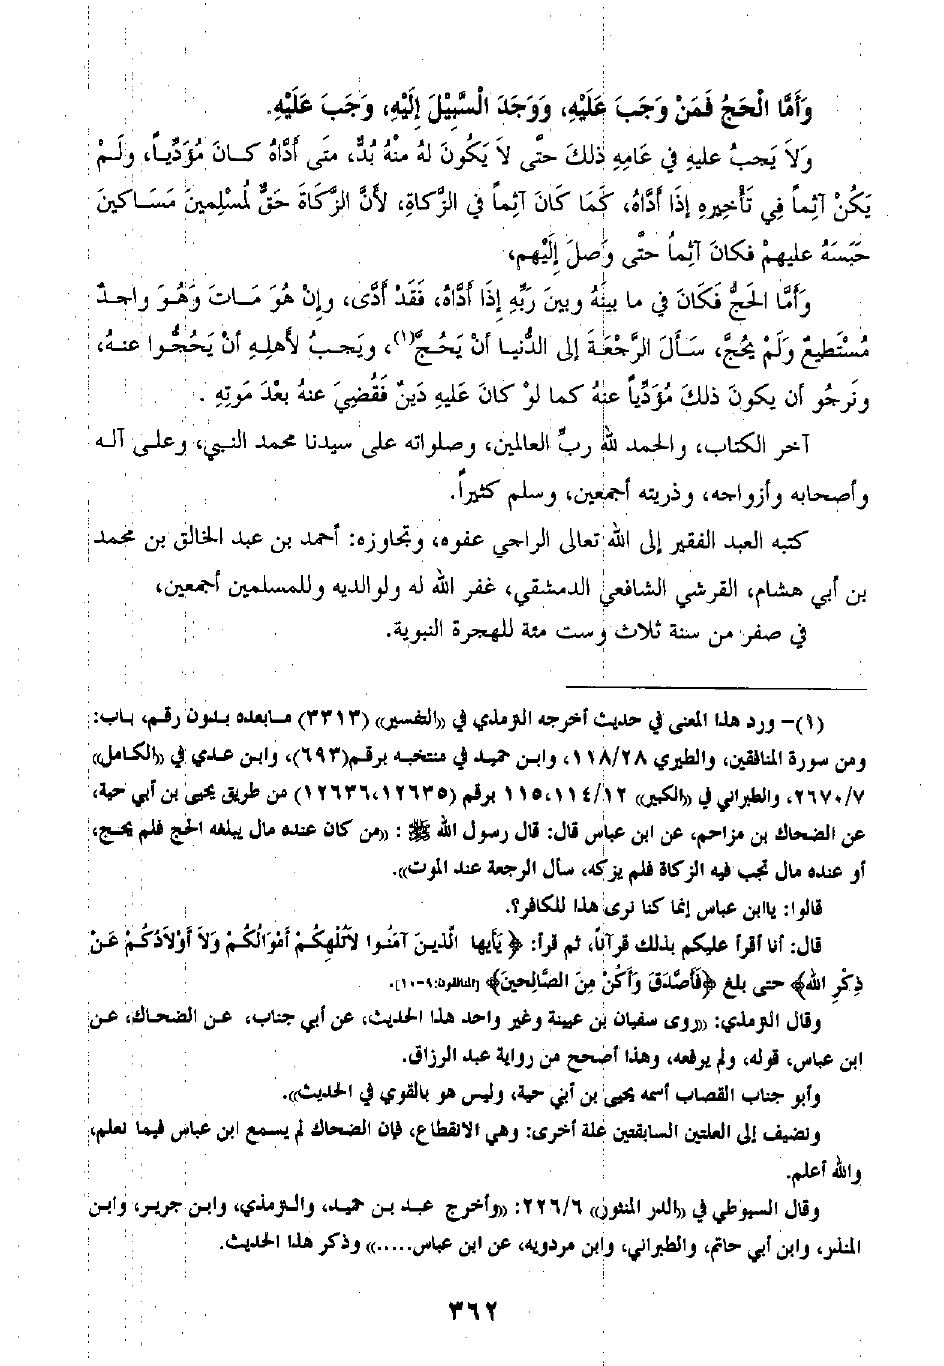 وَأَمَّا الْحَجُّ فَمَنْ وَجَبَ عَلَيْهِ، وَوَجَدَ الْسَّبِيْلَ إِلَيْهِ، وَجَبَ عَلَيْهِ.
وَلاَ يَجبُ عليهِ في عَامِهِ ذلكَ حتَّى لاَ يَكُونَ لهُ منْهُ بُدٌّ، متَى أَدَّاهُ كـانَ مُؤَدِّيـاً، ولَـمْ
يَكُنْ آثِماً فِي تَأْخِيرِهِ إذَا أَدَّاهُ، كَمَا كَانَ آثِماً في الزَّكاةِ، لأَنَّ الزَّكَاةَ حَقٌّ لُمسْلِمينَ مَسَـاكين
حَبَسَهُ عليهِمْ فكانَ آثِماً حتَّى وَصلَ إِلَيْهِم،
وَأَمَّا الحَجُّ فَكَانَ في ما بينَهُ وبينَ ربِّهِ إذَا أَدَّاهُ، فَقَدْ أَدَّى، وإنْ هُوَ مَـاتَ وَهُـوَ واجـدٌ
مُسْتَطيعٌ وَلَمْ يحُجَّ، سـأَلَ الرَّجْعَـةَ إلى الدُّنْيـا أَنْ يَحُـجَّ(١)، ويَجـبُ لأَهلِـهِ أَنْ يَحُجُّـوا عنـهُ،
ونَرجُو أن يكونَ ذلكَ مُؤَدِّياً عنهُ كما لوْ كانَ عَليهِ دَينٌ فَقُضِيَ عنهُ بعْدَ مَوتِهِ .
آخر الكتاب، والحمد لله ربِّ العالمين، وصلواته على سيدنا محمد النبي، وعلـى آلـه
وأصحابه وأزواجه، وذريته أجمعين، وسلم كثيراً.
كتبه العبد الفقير إلى الله تعالى الراجي عفوه، وتجاوزه: أحمد بن عبد الخالق بن محمد
بن أبي هشام، القرشي الشافعي الدمشقي، غفر الله له ولوالديه وللمسلمين أجمعين،
في صفر من سنة ثلاث وست مئة للهجرة النبوية.
(١)- ورد هذا المعنى في حديث أخرجه الترمذي في «التفسير» (٣٣١٣) مـابعده بـدون رقـم، بـاب:
ومن سورة المنافقين، والطبري ١١٨/٢٨، وابـن حميـد في منتخبـه برقـم(٦٩٣)، وابـن عـدي في «الكـامل»
٢٦٧٠/٧، والطبراني في «الكبير» ١١٥،١١٤/١٢ برقم (١٢٦٣٦،١٢٦٣٥) من طريق يحيى بن أبي حية،
عن الضحاك بن مزاحم، عن ابن عباس قال: قال رسول الله ﷺ : «من كان عنده مال يبلغه الحج فلم يحج،
أو عنده مال تجب فيه الزكاة فلم يزكه، سأل الرجعة عند الموت».
قالوا: ياابن عباس إنما كنا نرى هذا للكافر؟.
قال: أنا أقرأ عليكم بذلك قرآناً، ثم قرأ: ﴿ يَأَيها الَّذينَ آمَنُوا لاَتُلْهِكُمْ أَمْوَالُكُمْ وَلاَ أَوْلاَدُكُمْ عَنْ
ذِكْرِ الله﴾ حتى بلغ ﴿فَأَصَّدَقَ وَأَكُنْ مِنَ الصَّالِحِينَ﴾ [المنافقون:٩-١٠].
وقال الترمذي: «روى سفيان بن عيينة وغير واحد هذا الحديث، عن أبي جناب، عـن الضحـاك، عـن
ابن عباس، قوله، ولم يرفعه، وهذا أصحح من رواية عبد الرزاق.
وأبو جناب القصاب أسمه يحيى بن أبي حية، وليس هو بالقوي في الحديث».
ونضيف إلى العلتين السابقتين علة أخرى: وهي الانقطاع، فإن الضحاك لم يسمع ابن عباس فيما نعلم،
والله أعلم.
وقال السيوطي في «الدر المنثور» ٢٢٦/٦: «وأخرج عبـد بـن حميـد، والـترمذي، وابـن جريـر، وابـن
المنذر، وابن أبي حاتم، والطبراني، وابن مردويه، عن ابن عباس.....» وذكر هذا الحديث.
٣٦٢